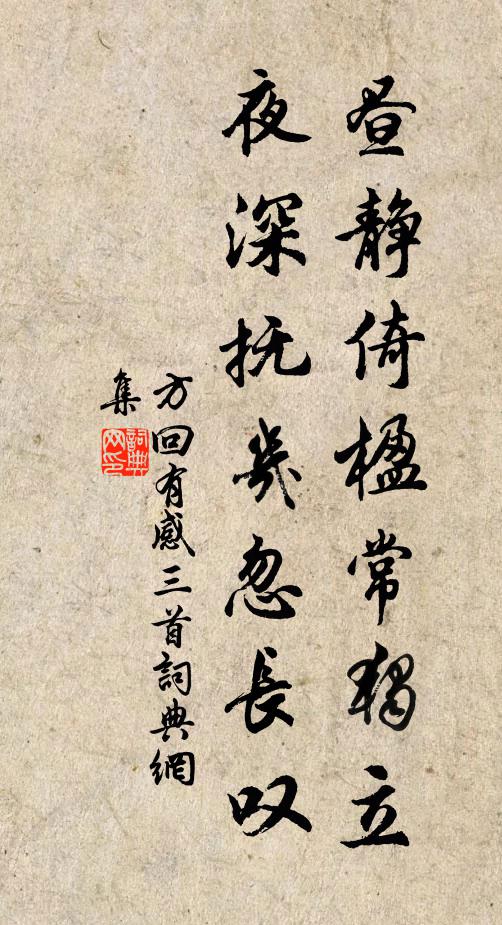 昼静倚楹常独立
夜深抚几忽長叹
方回有感三首詞典網
集
詞典网印